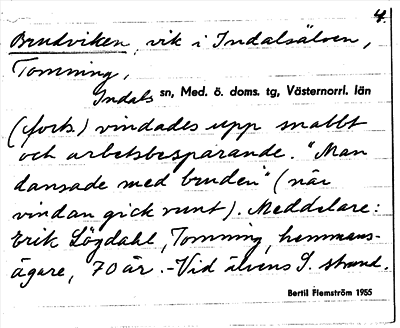 4.
Brudviken, vik i Indalsälven,
Tomming,
Indals sn, Med. ö. doms. tg, Västernorrl. län
(forts.) vindades upp snabbt
och arbetsbesparande. "Man
dansade med bruden" (när
vindan gick runt). Meddelare:
Erik Lögdahl, Tomming, hemmans-
ägare, 70 år. - Vid älvens S. strand.
Bertil Flemström 1955